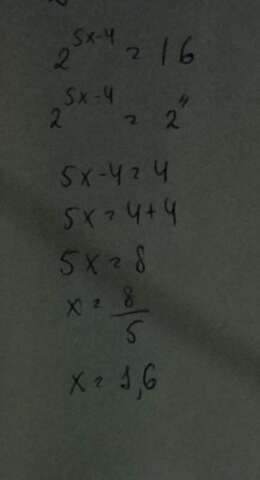 2^{5x-4} = 16
2^{5x-4} = 2^4
5x-4=4
5x=4+4
5x=8
x=\frac{8}{5}
x=1,6